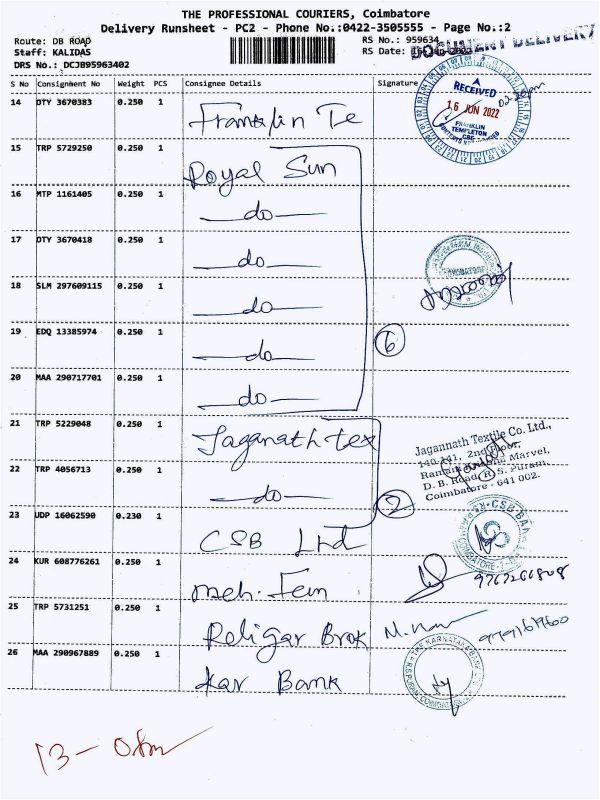 THE PROFESSIONAL COURIERS, Coimbatore
Delivery Runsheet - PC2 - Phone No.:0422-3505555 - Page No.:2
Route: DB ROAD
Staff: KALIDAS
DRS No.: DCJB95963402
RS No.: 959634
RS Date:
DOCUMENT DELIVERY
S No Consignment No Weight PCS Consignee Details Signature
RECEIVED
16 JUN 2022
FRANKLIN
TEMPLETON
CBE
14 DTY 3670383 0.250 1 Franklin Te
15 TRP 5729250 0.250 1 Royal Sun
16 MTP 1161405 0.250 1 do
17 DTY 3670418 0.250 1 do
18 SLM 297609115 0.250 1 do
19 EDQ 13385974 0.250 1 do
6
20 MAA 290717701 0.250 1 do
21 TRP 5229048 0.250 1 Jaganath tex
Jagannath Textile Co. Ltd.,
140-141, 2nd Floor,
Marvel,
D. B. Road, R. S. Puram,
Coimbatore - 641 002.
22 TRP 4056713 0.250 1 do
2
23 UDP 16062590 0.230 1 CSB Ltd
CSB BANK
24 KUR 608776261 0.250 1
25 TRP 5731251 0.250 1 Religar Brok
26 MAA 290967889 0.250 1 Kar Bank
THE KARNATAKA BANK
13 -